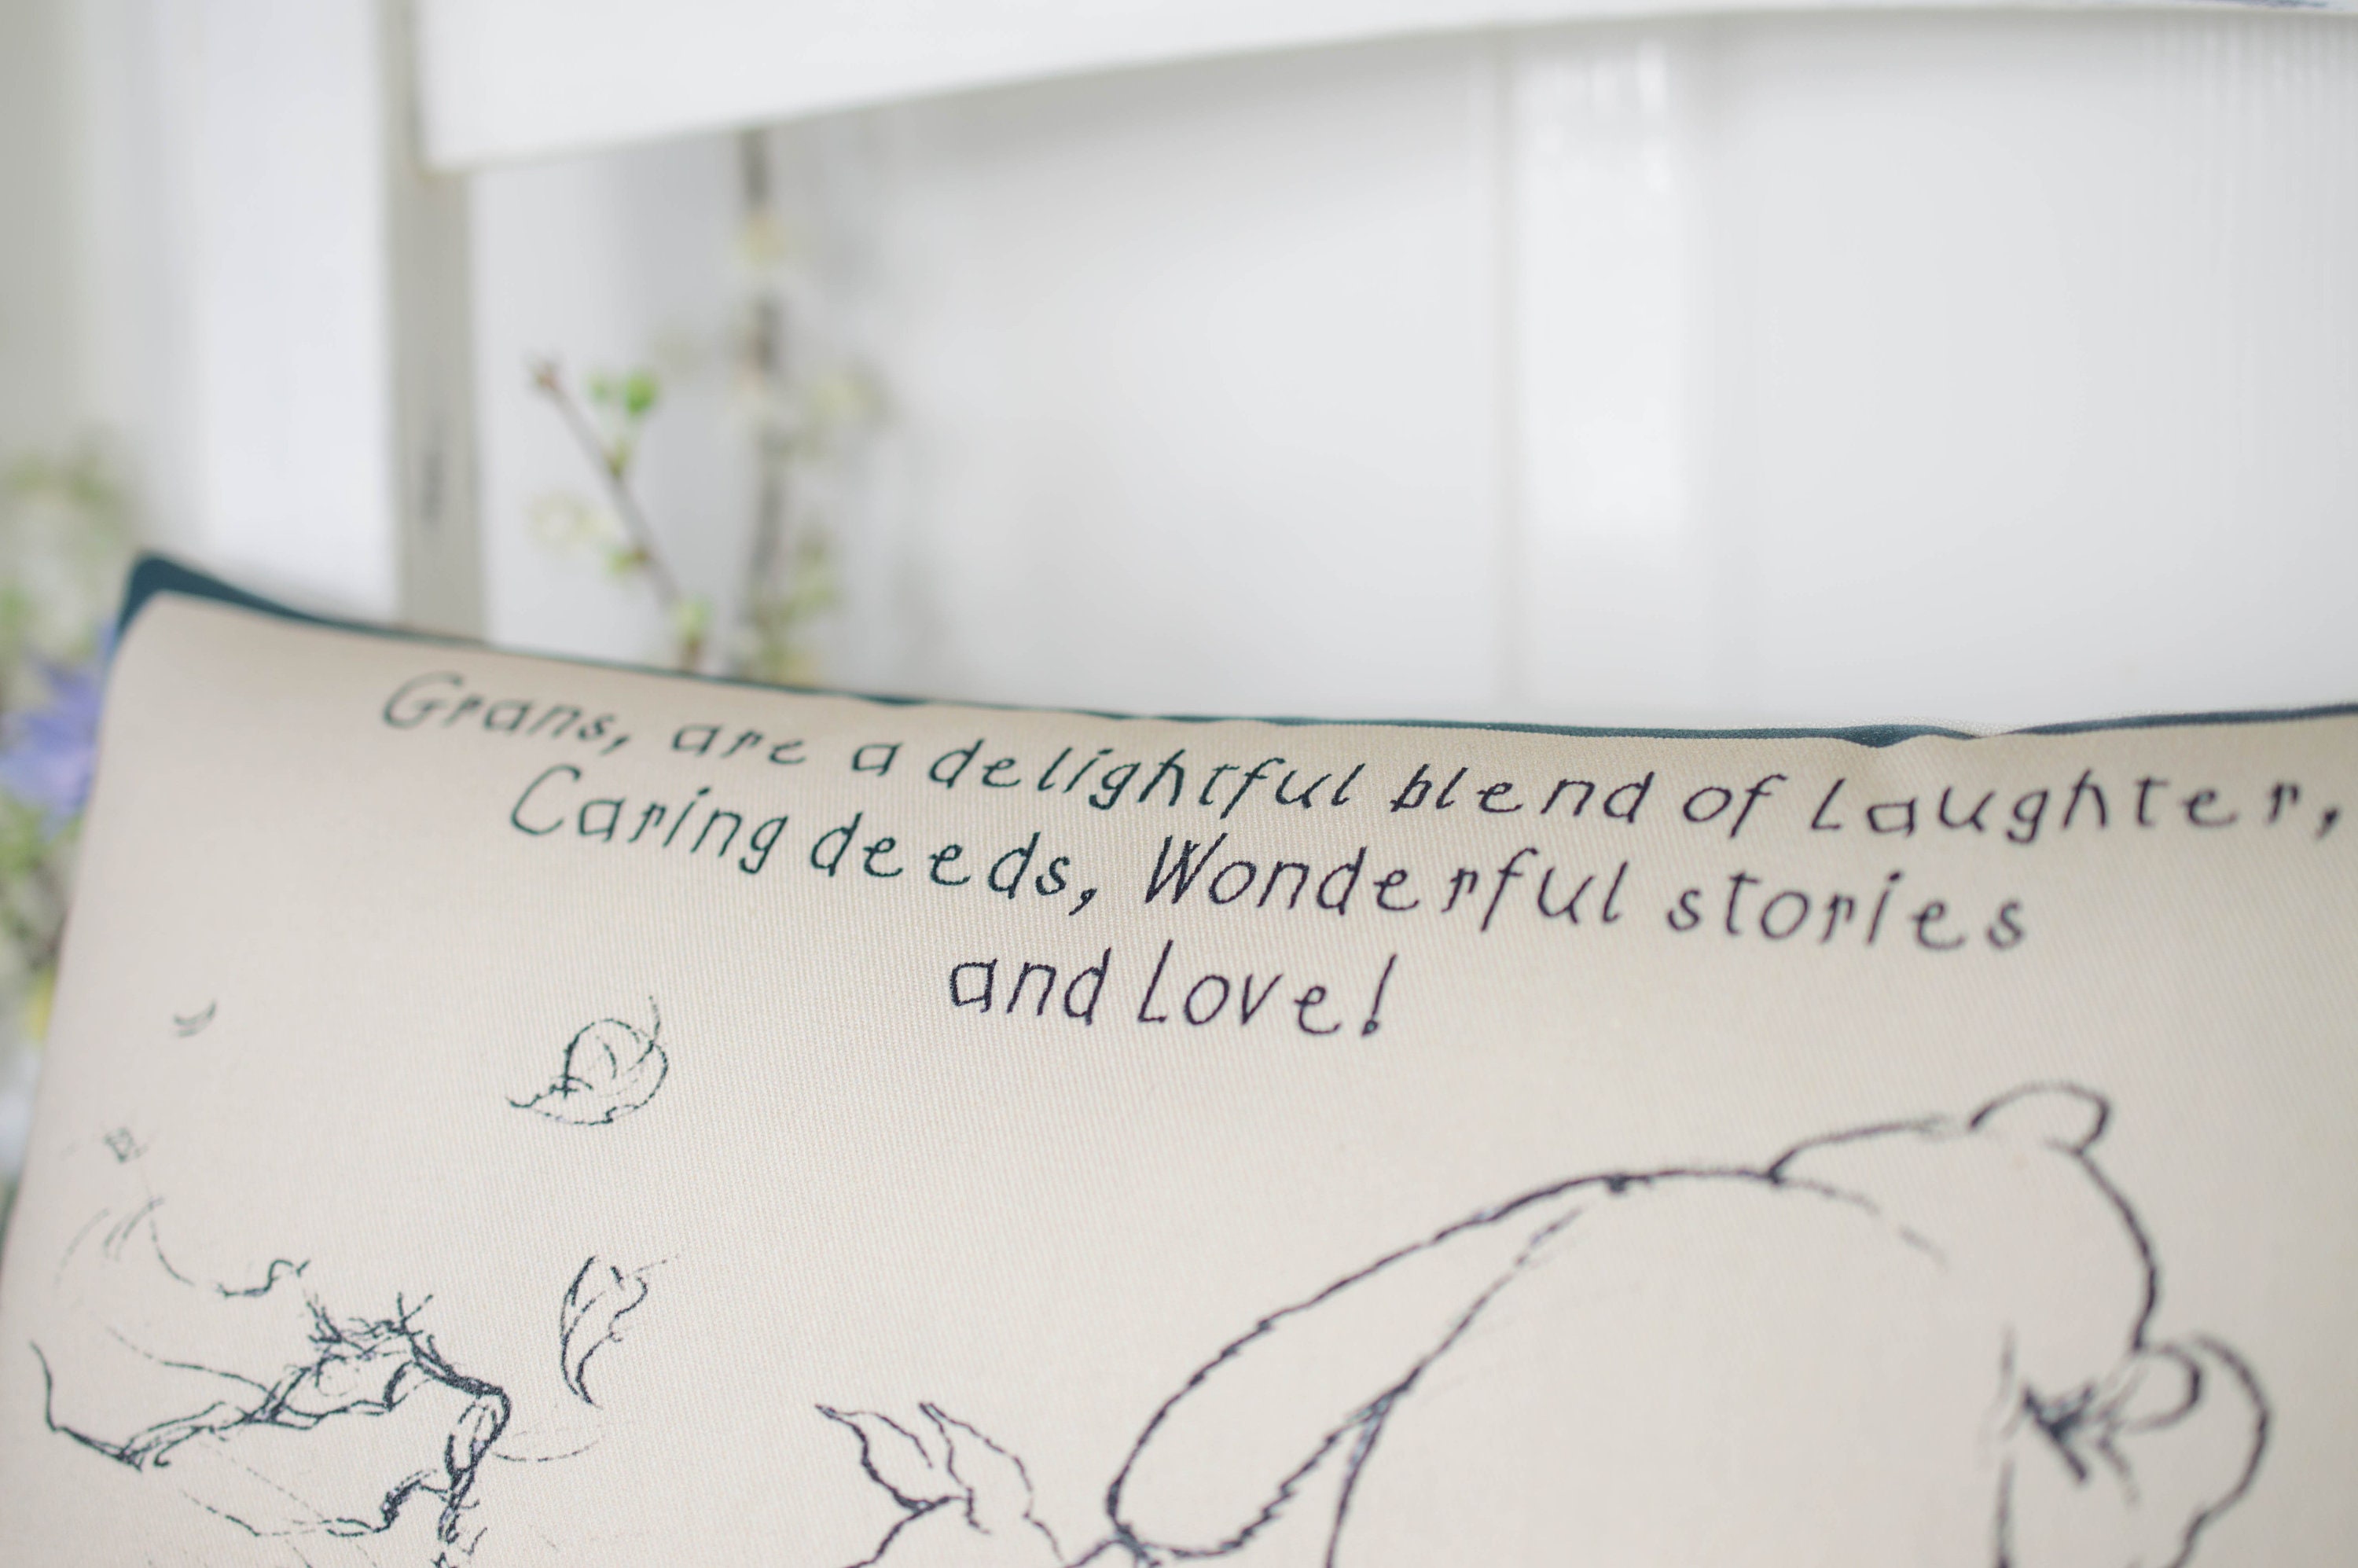 Grans, are a delightful blend of Laughter,
Caring deeds, Wonderful stories
and Love!